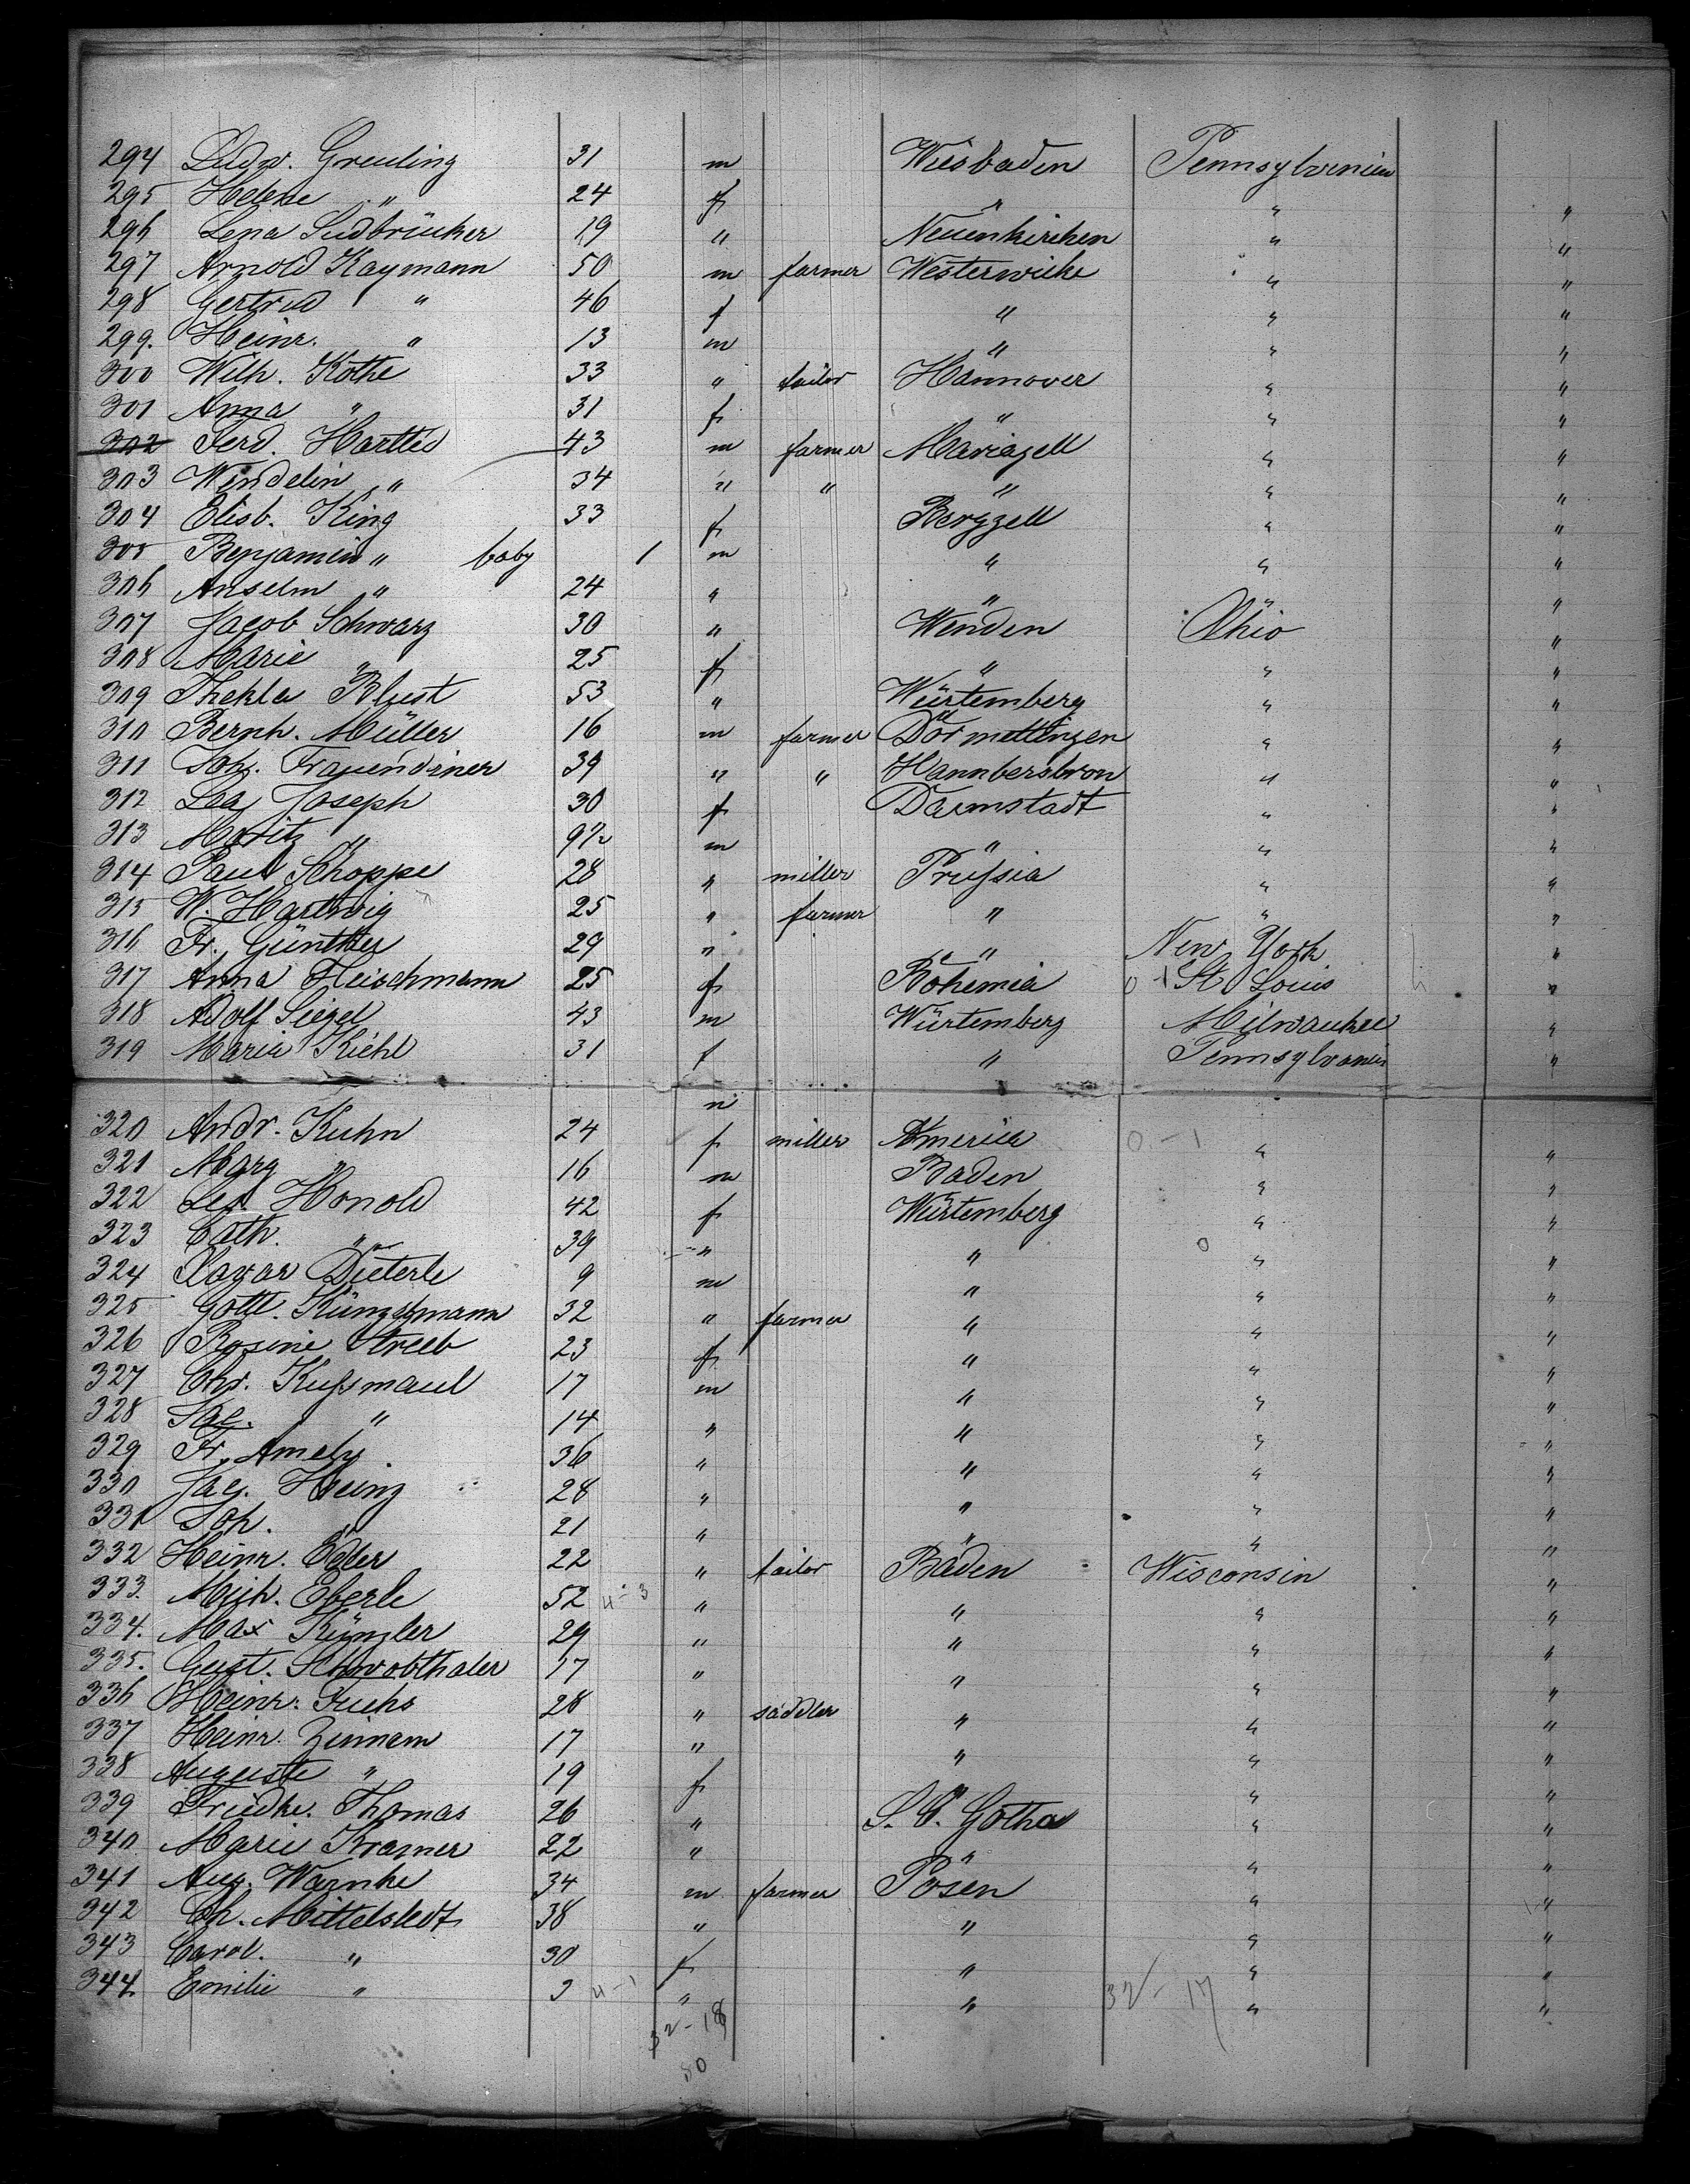 294 Ludw. Greuling 31 m Wiesbaden Pennsylvanien
295 Helene " 24 f " " "
296 Lena Sudbrücker 19 " Neuenkirchen " "
297 Arnold Kaymann 50 m farmer Westerwiehe " "
298 Gertrud " 46 f " " "
299. Heinr. " 13 m " " "
300 Wilh. Köthe 33 " tailor Hannover " "
301 Anna " 31 f " " "
302 Ferd. 43 m farmer Mariazell " "
303 Wendelin " 34 " " " " "
304 Elisb. King 33 f Bergzell " "
305 Benjamin " baby 1 m " " "
306 Anselm " 24 " " " "
307 Jacob Schwarz 30 " Wenden Ohio "
308 Marie " 25 f " " "
309 Thekla Blust 53 " Würtemberg " "
310 Bernh. Müller 16 m farmer Dörmettingen " "
311 Joh. 39 " " " "
312 Lea Joseph 30 f Darmstadt " "
313 Moritz " 9½ m " " "
314 Paul Schoppe 28 " miller Prussia " "
315 W. Hartwig 25 " farmer " " "
316 Fr. Günther 29 " " New York "
317 Anna Fleischmann 25 f Böhemia St Louis "
318 Adolf Siegel 43 m Würtemberg Milwaukee "
319 Maria Kiehl 31 f " Pennsylvanien "
m
320 Andr. Kuhn 24 f miller America 0-1 " "
321 Marg " 16 m Baden " "
322 Leo. Honold 42 f Würtemberg " "
323 Cath. " 39 " " " "
324 Xavar Dieterle 9 m " " "
325 Gottl. Künzchmann 32 " farmer " " "
326 Rosine Streeb 23 f " " "
327 Chr. Kussmaul 17 m " " "
328 Jac. " 14 " " " "
329 Fr. Amely 36 " " " "
330 Jac. Heinz 28 " " " "
331 Joh. " 21 " " " "
332 Heinr. Edler 22 " tailor Baden Wisconsin "
333. Mich. Eberle 52 4-3 " " " "
334. Max Künzler 29 " " " "
335. Gust. Schwobthaler 17 " " " "
336 Heinr. Fuchs 28 " saddler " " "
337 Heinr. Zinnem 17 " " " "
338 Auguste " 19 f " " "
339 Friedke. Thomas 26 " S. C. Gotha " "
340 Marie Kramer 22 " " " "
341 Aug. Warnke 34 m farmer Posen " "
342 Ch. Mittelstedt 38 " " " "
343 Carol. " 30 f " " "
344 Emilie " 3 4-1 " " 32-17 " "
32-18
80